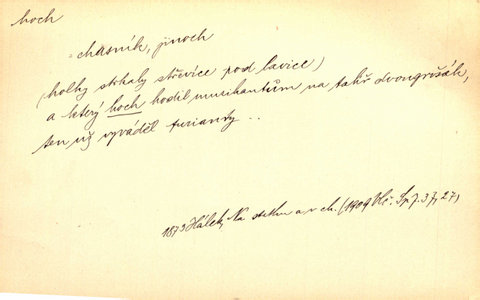 hoch
= chasník, jinoch
(holky strkaly střevíce pod lavice)
a který hoch hodil muzikantům na talíř dvougrošák,
ten už vyváděl furianty ..
1873 Hálek, Na statku a v ch. (1909 Vč. Sp. 7. 37, 27)